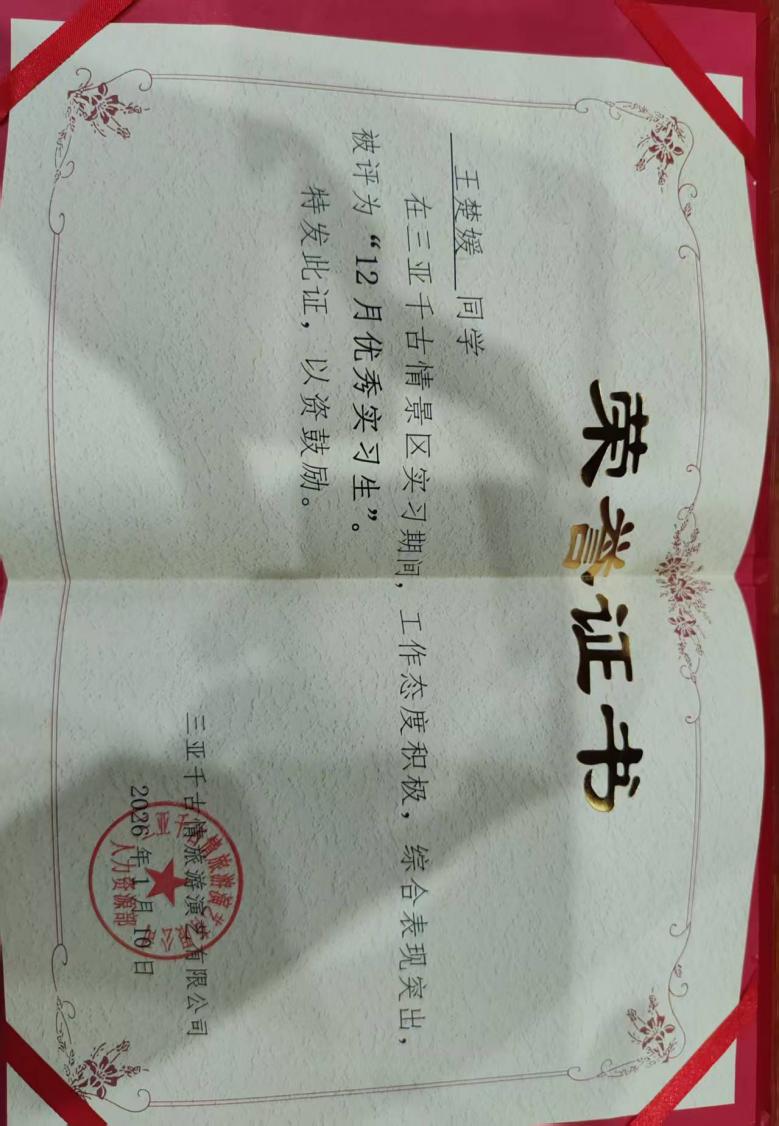 荣誉证书
王楚媛 同学
在三亚千古情景区实习期间，工作态度积极，综合表现突出，
被评为“12月优秀实习生”。
特发此证，以资鼓励。
三亚千古情旅游演艺有限公司
2026年1月10日
人力资源部